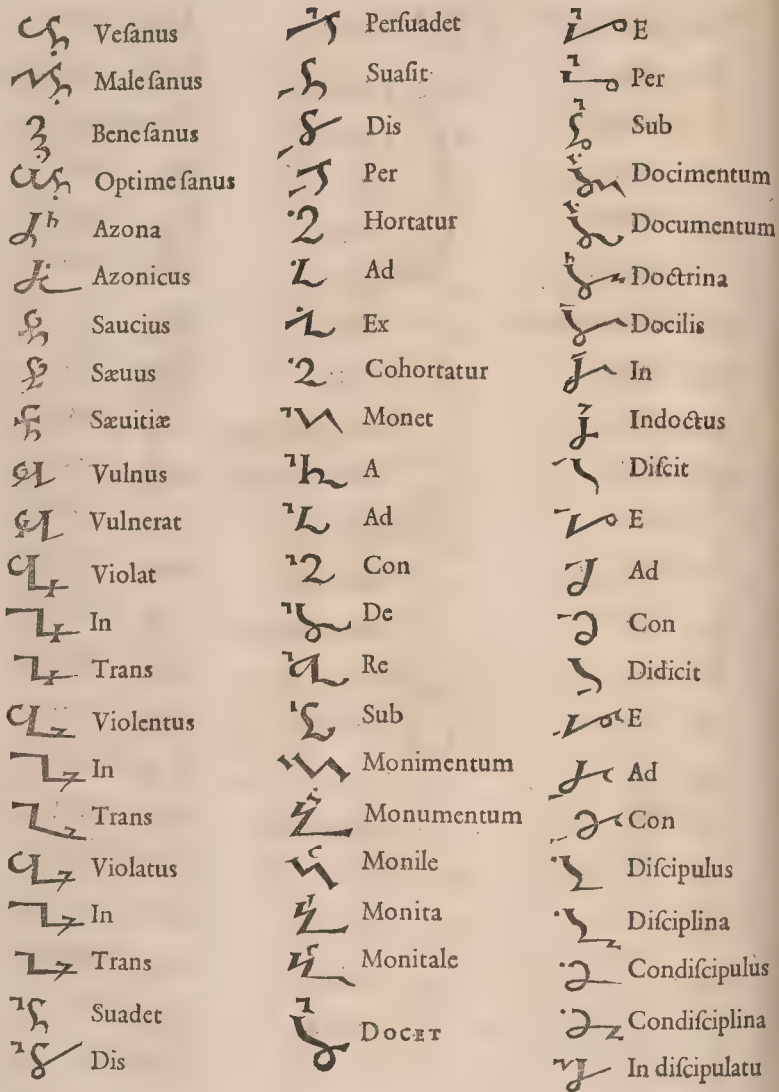 Veſanus
Male ſanus
Bene ſanus
Optime ſanus
Azona
Azonicus
Saucius
Sæuus
Sæuitiæ
Vulnus
Vulnerat
Violat
In
Trans
Violentus
In
Trans
Violatus
In
Trans
Suadet
Dis
Perſuadet
Suaſit
Dis
Per
Hortatur
Ad
Ex
Cohortatur
Monet
A
Ad
Con
De
Re
Sub
Monimentum
Monumentum
Monile
Monita
Monitale
DOCET
E
Per
Sub
Docimentum
Documentum
Doctrina
Docilis
In
Indoctus
Diſcit
E
Ad
Con
Didicit
E
Ad
Con
Diſcipulus
Diſciplina
Condiſcipulùs
Condiſciplina
In diſcipulatu